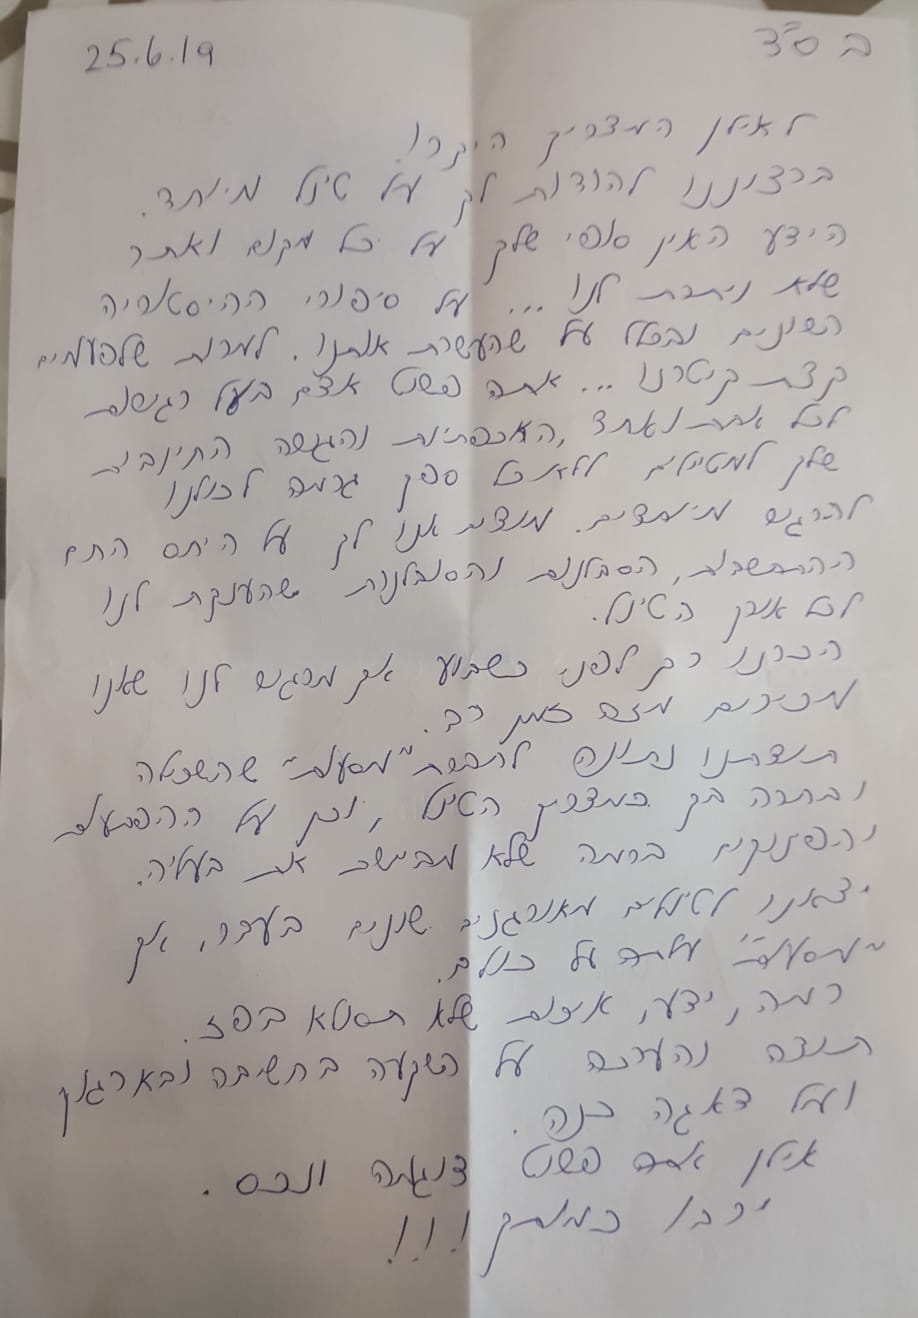 בס"ד
25.6.19
לאילן המדריך היקר!
ברצוננו להודות לך על טיול מיוחד.
הידע האין סופי שלך על כל מקום ואתר
שלא ניתבת לנו... על סיפורי ההיסטוריה
השונים ובכלל על שהעשרת אותנו. למרות שלפעמים
קצת קיטרנו... אתה פשוט אדם בעל רגישות
לכל אחת ואחד, האכפתיות והגישה החיובית
שלך למטיילים ללא כל ספק גרמה לכולנו
להרגיש מיוחדים. מודים אנו לך על היחס החם
ההתחשבות, הסבלנות והסובלנות שהענקת לנו
לכל אורך הטיול.
הכרנו רק לפני כשבוע אך מרגיש לנו שאנו
מכירים מזה זמן רב.
תודתנו נתונה לחברת "מסעות" שהשכילה
ובחרה בך כמדריך הטיול, וכן על ההפתעות
והפינוקים ברמה שלא מביישת את בעליה.
יצאנו לטיולים מאורגנים שונים בעבר, אך
"מסעות" עולה על כולם.
רמה, ידע, איכות שלא תסולא בפז.
תודה והערכה על השקעה בחשיבה ובארגון
ועל דאגה כנה.
אילן אתה פשוט דוגמה ונכס.
ירבו כמותך!!!